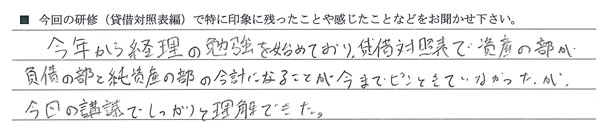 ■ 今回の研修（貸借対照表編）で特に印象に残ったことや感じたことなどをお聞かせ下さい。
今年から経理の勉強を始めており、貸借対照表で資産の部が
負債の部と純資産の部の合計になることが今までピンときていなかったが、
今回の講議でしっかりと理解できた。